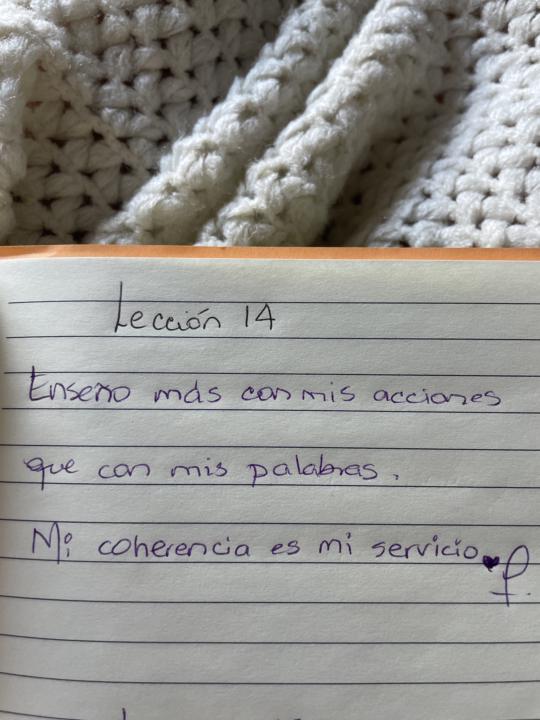 Lección 14
Enseño más con mis acciones
que con mis palabras.
Mi coherencia es mi servicio